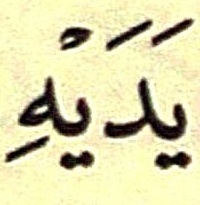 يَدَيْهِ